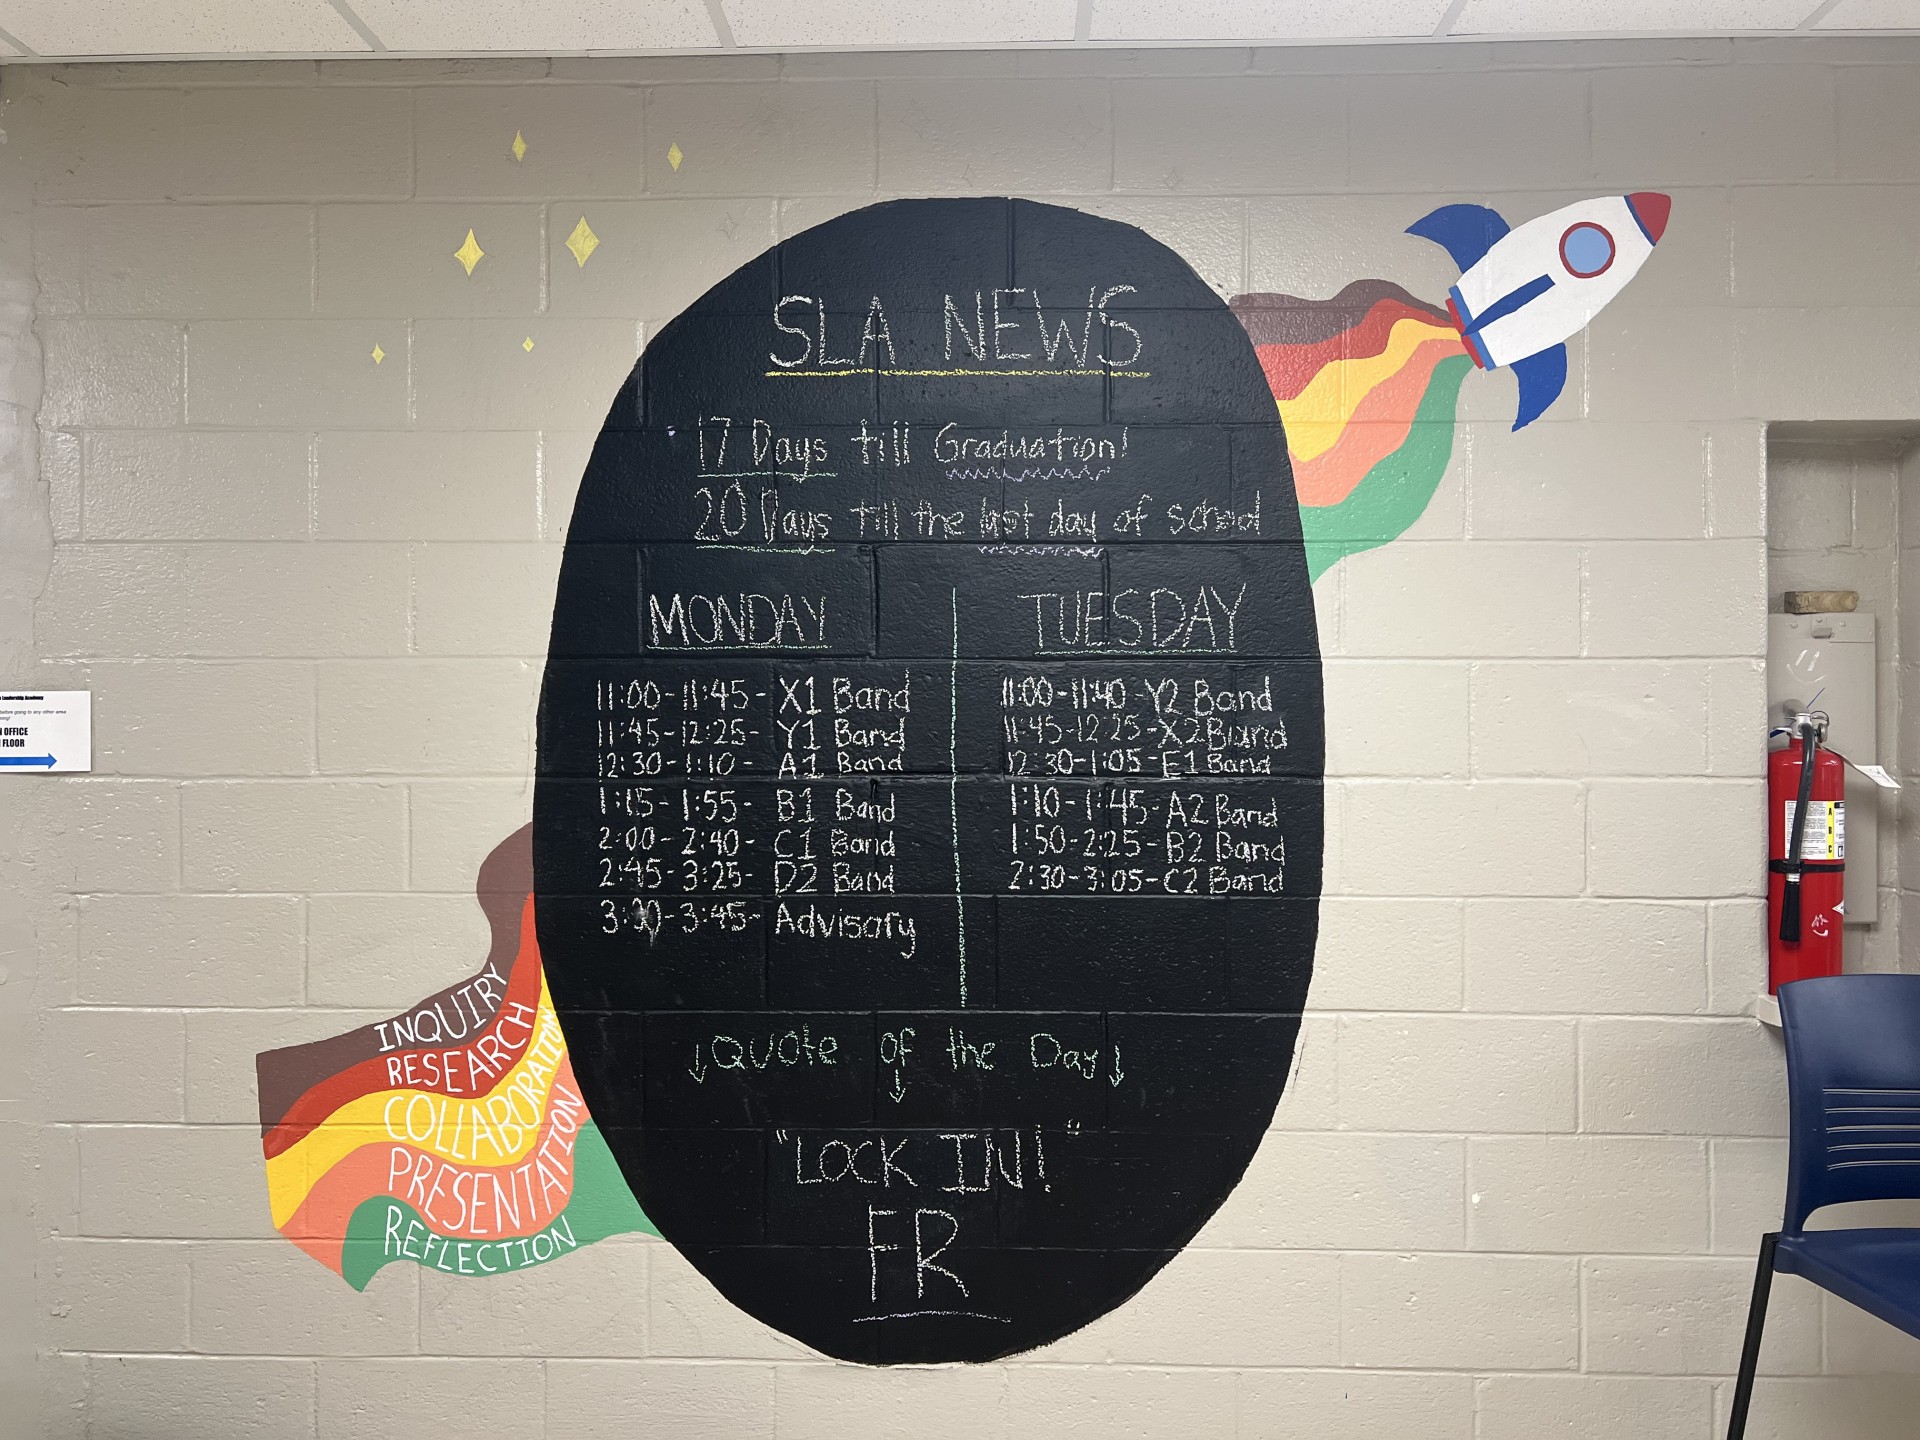 SLA NEWS
17 Days till Graduation!
20 Days till the last day of school
MONDAY
11:00-11:45- X1 Band
11:45-12:25- Y1 Band
12:30-1:10- A1 Band
1:15-1:55- B1 Band
2:00-2:40- C1 Band
2:45-3:25- D2 Band
3:30-3:45- Advisory
TUESDAY
11:00-11:40-Y2 Band
11:45-12:25-X2 Band
12:30-1:05-E1 Band
1:10-1:45-A2 Band
1:50-2:25-B2 Band
2:30-3:05-C2 Band
↓Quote of the Day↓
↓
"LOCK IN!"
FR
INQUIRY
RESEARCH
COLLABORATION
PRESENTATION
REFLECTION
Leadership Academy
before going to any other area
OFFICE
FLOOR
A
B
C